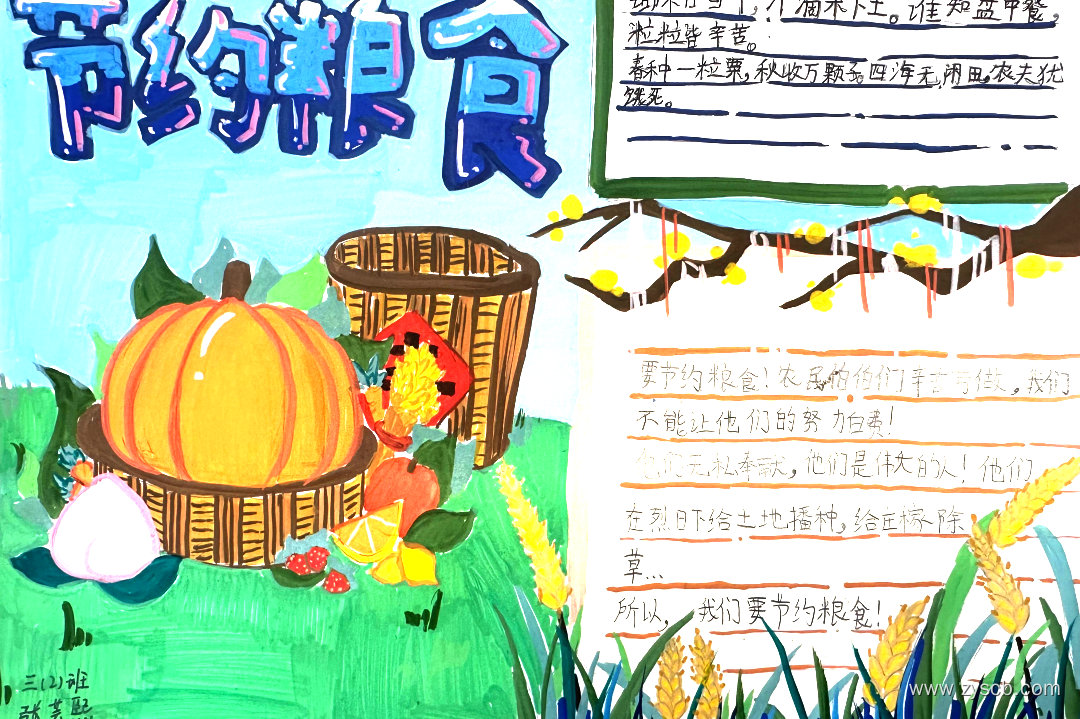 节约粮食
锄禾日当午,汗滴禾下土。谁知盘中餐,
粒粒皆辛苦。
春种一粒粟,秋收万颗子。四海无闲田,农夫犹
饿死。
要节约粮食!农民伯伯们辛苦劳做,我们
不能让他们的努力白费!
他们无私奉献,他们是伟大的人!他们
在烈日下给土地播种,给庄稼除
草...
所以,我们要节约粮食!
三(2)班
www.zyscb.com